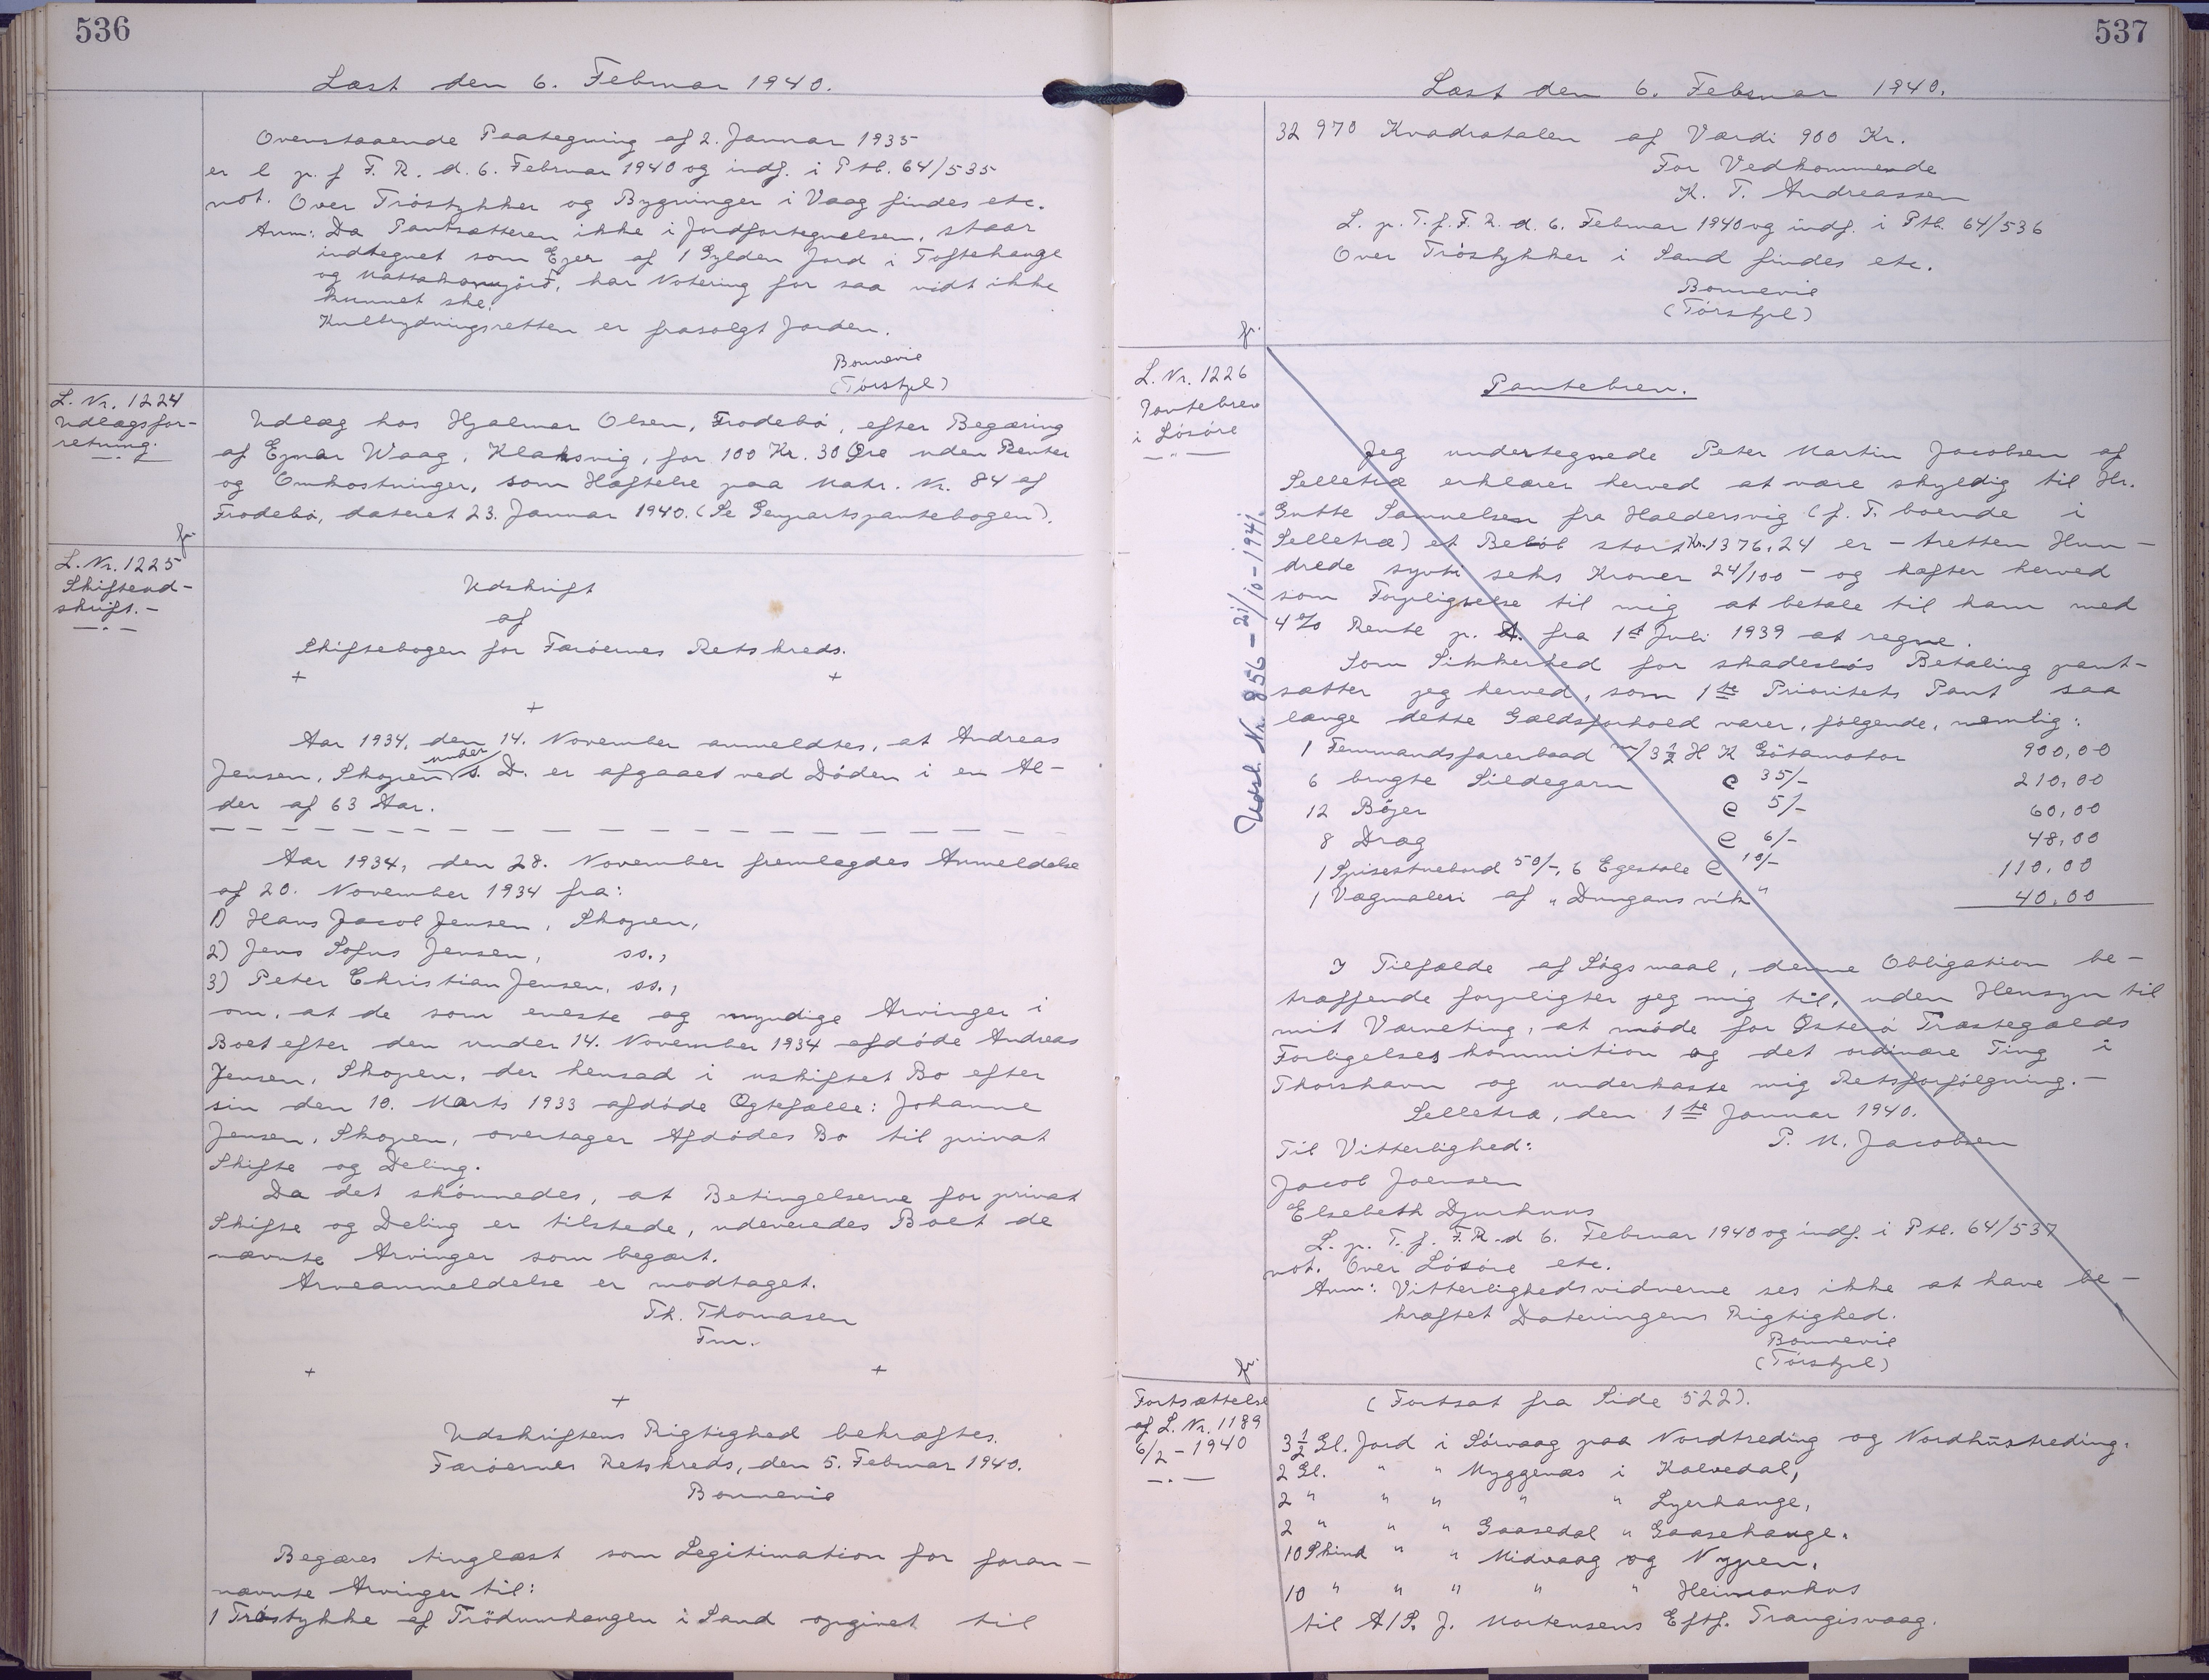 536
Læst den 6. Februar 1940.
Ovenstaaende Paategning af 2. Januar 1935
er l p. f F. R. d. 6. Februar 1940 og indf. i Ptb. 64/535
not. Over Tröstykker og Bygninger i Vaag findes etc.
Anm: Da Pantsætteren ikke i Jordfortegnelsen, staar
indtegnet som Ejer af 1 Gylden Jord i Toftehauge
og, har Notering for saa vidt ikke
kunnet ske.
Kulbrydningsretten er frasolgt Jorden.
Bonnevie
(Tórstjl)
L. Nr. 1224
Udlægsfor-
retning.
Udlæg hos Hjalmar Olsen, Frodebö, efter Begæring
af Ejnar Waag, Klaksvig, for 100 Kr. 30 Øre uden Renter
og Omkostninger, som Hæftelse paa Matr. Nr. 84 af
Frodebö, dateret 23. Januar 1940. (Se Genpartspantebogen).
fr.
L. Nr. 1225
Skifteud-
skrift.-
Udskrift
af
Skiftebogen for Færöernes Retskreds.
+ +
+
Aar 1934, den 14. November anmeldtes, at Andreas
Jensen, Skopen under s. D. er afgaaet ved Döden i en Al-
der af 63 Aar.
Aar 1934, den 28. November fremlagdes Anmeldelse
af 20. November 1934 fra:
1) Hans Jacob Jensen, Skopen,
2) Jens Sofus Jensen, ss.,
3) Peter Christian Jensen, ss.,
om, at de som eneste og myndige Arvinger i
Boet efter den under 14. November 1934 afdöde Andreas
Jensen, Skopen, der hensad i uskiftet Bo efter
sin den 10. Marts 1933 afdöde Ægtefælle: Johanne
Jensen, Skopen, overtager Afdödes Bo til privat
Skifte og Deling.
Da det skönnedes, at Betingelserne for privat
Skifte og Deling er tilstede, udleveredes Boet de
nævnte Arvinger som begært.
Arveanmeldelse er modtaget.
Th. Thomasen
Fm.
+ +
+
Udskriftens Rigtighed bekræftes.
Færöernes Retskreds, den 5. Februar 1940.
Bonnevie
Begæres tinglæst som Legitimation for foran-
nævnte Arvinger til:
1 Tröstykke af Trödumhaugen i Sand opgivet til
537
Læst den 6. Februar 1940.
32 970 Kvadratalen af Værdi 900 Kr.
For Vedkommende
K. T. Andreassen
L. p. T. f. F. R. d. 6. Februar 1940 og indf. i Ptb. 64/536
Over Tröstykker i Sand findes etc.
Bonnevie
(Tórstjl)
fr.
L. Nr. 1226
Pantebrev
i Lösöre
Udsl. Nr. 856 - 21/10-1941.
Pantebrev.
Jeg undertegnede Peter Martin Jacobsen af
Selletræ erklærer herved at være skyldig til Hr.
Gutte Samuelsen fra Haldersvig (f. T. boende i
Selletræ) et Belöb stort Kr. 1376,24 er - tretten Hun-
drede syvti seks Kroner 24/100 - og hæfter herved
som Forpligtelse til mig at betale til ham med
4% Rente p. A. fra 1st Juli 1939 at regne.
Som Sikkerhed for skadeslös Betaling pant-
sætter jeg herved, som 1ste Prioritets Pant saa
længe dette Gældsforhold varer, fölgende, nemlig:
1 Femmandsfarerbaad m/ 3 1/2 H K Götamotor 900,00
6 brugte Sildegarn @ 35/- 210,00
12 Böjer @ 5/- 60,00
8 Drag @ 6/- 48,00
1 Spisestuebord 50/-, 6 Egestole @ 10/- 110,00
1 Vægmaleri af "Dungansvík" 40,00
I Tilfælde af Sögsmaal, denne Obligation be-
træffende forpligter jeg mig til, uden Hensyn til
mit Værneting, at möde for Österö Træstegælds
Forligelses kommition og det ordinære Ting i
Thorshavn og underkaste mig Retsforfölgning.-
Selletræ, den 1ste Januar 1940.
P. M. Jacobsen
Til Vitterlighed:
Jacob Joensen
Elsebeth Djurhuus
L. p. T. f. F.R. d 6. Februar 1940 og indf. i Ptb. 64/537
not. Over Lösöre etc.
Anm: Vitterlighedsvidnerne ses ikke at have be-
kræftet Dateringens Rigtighed.
Bonnevie
(Tórstjl)
fr.
Fortsættelse
af L. Nr. 1189
6/2-1940
(Fortsat fra Side 522).
3 1/2 Gl. Jord i Sörvaag paa Nordtreding og Nordhústreding.
2 Gl. " " Myggenæs i Kalvedal,
2 " " " " " Lyerhauge,
2 " " " Gaasedal " Gaasehauge.
10 Skind " " Midvaag og Nypen,
10 " " " " " Heimanhus
til A/S. J. Mortensens Eftf. Trangisvaag.